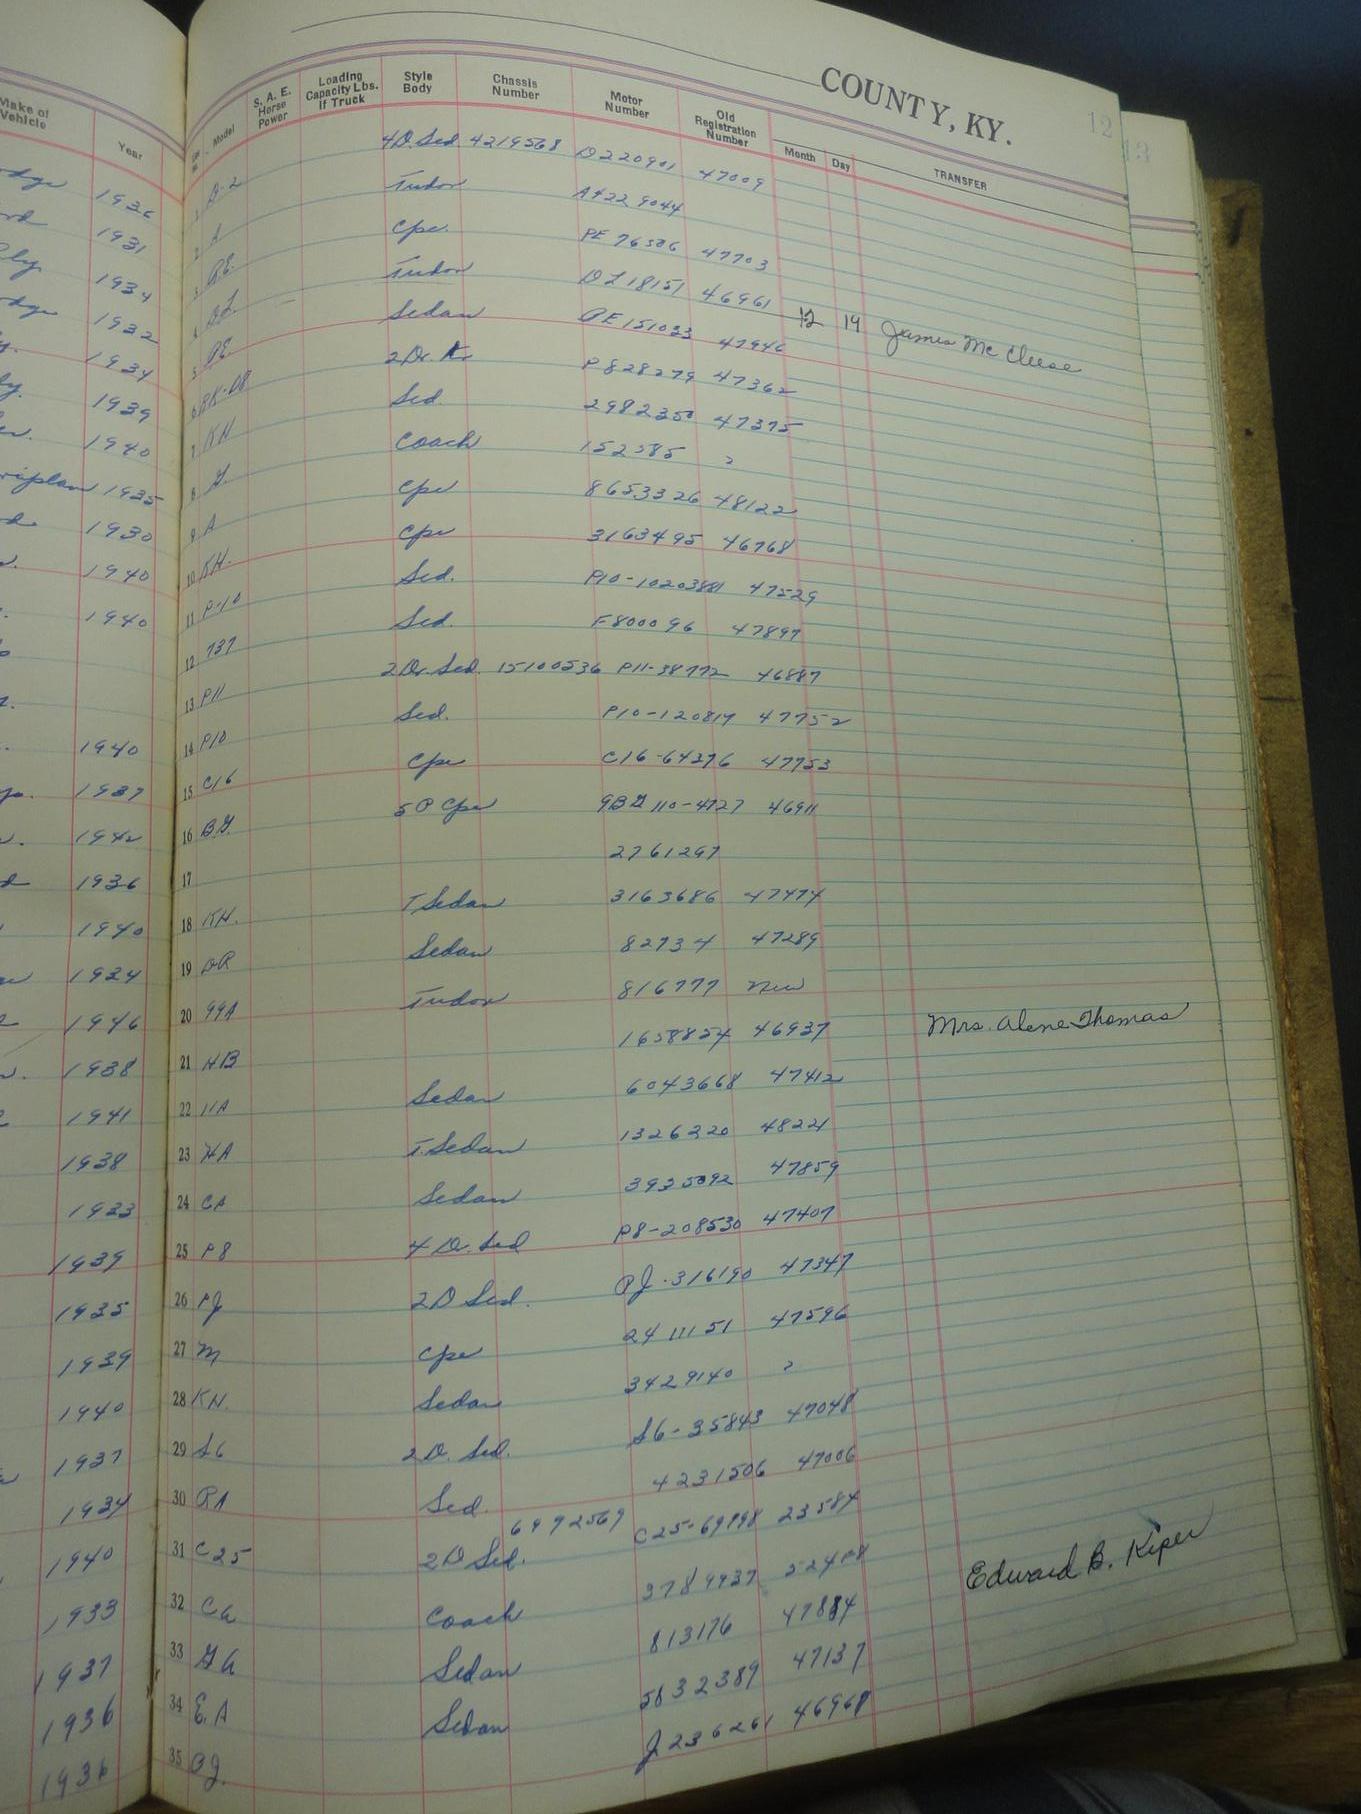 COUNTY, KY.
12
13
Make of Vehicle Year
Model S. A. E. Horse Power Loading Capacity Lbs. If Truck Style Body Chassis Number Motor Number Old Registration Number Month Day TRANSFER
1936 1 D-2 4D. Sed 4219568 D220901 47009
1931 2 A Tudor A4229044
1934 3 P.E. Cpe. PE 76506 47703
1932 4 DL Tudor DL18151 46961 12 19 James Mc Cleese
1934 5 PE. Sedan PE 151033 47946
1939 6 2 Dr. P828279 47362
1940 7 KH Sed. 2982350 47375
1935 8 G. Coach 152585 ?
1930 9 A Cpe 8653326 48122
1940 10 KH. Cpe 3163495 46768
1940 11 P-10 Sed. P10-10203881 47529
12 737 Sed. F800096 47897
13 P11 2 Dr. Sed. 15100536 P11-38772 46887
1940 14 P10 Sed. P10-120819 47752
1937 15 C16 Cpe C16-64276 47753
1942 16 B.G. 5 P Cpe 46911
1936 17 2761297
1940 18 KH. T Sedan 3163686 47474
1934 19 DR Sedan 82734 47289
1946 20 99A Tudor 816777 New
1938 21 HB 1658854 46937 Mrs. Alene Thomas
1941 22 11A Sedan 6043668 47412
1938 23 HA T. Sedan 1326320 48221
1933 24 CA Sedan 3935092 47859
1939 25 P8 4 D. Sed P8-208530 47407
1935 26 PJ 2 D Sed. PJ-316190 47347
1939 27 M Cpe 2411151 47596
1940 28 KH. Sedan 3429140 ?
1937 29 S6 2 D. Sed. S6-35843 47048
1934 30 PA Sed. 4231506 47006
1940 31 C25 2 D Sed. 6992569 C25-69998 23584
1933 32 Ca Coach 3789937 Edward B. Kiper
1937 33 GA Sedan 813176 47884
1936 34 E.A Sedan 5832389 47137
1936 35 PJ. J236261 46968